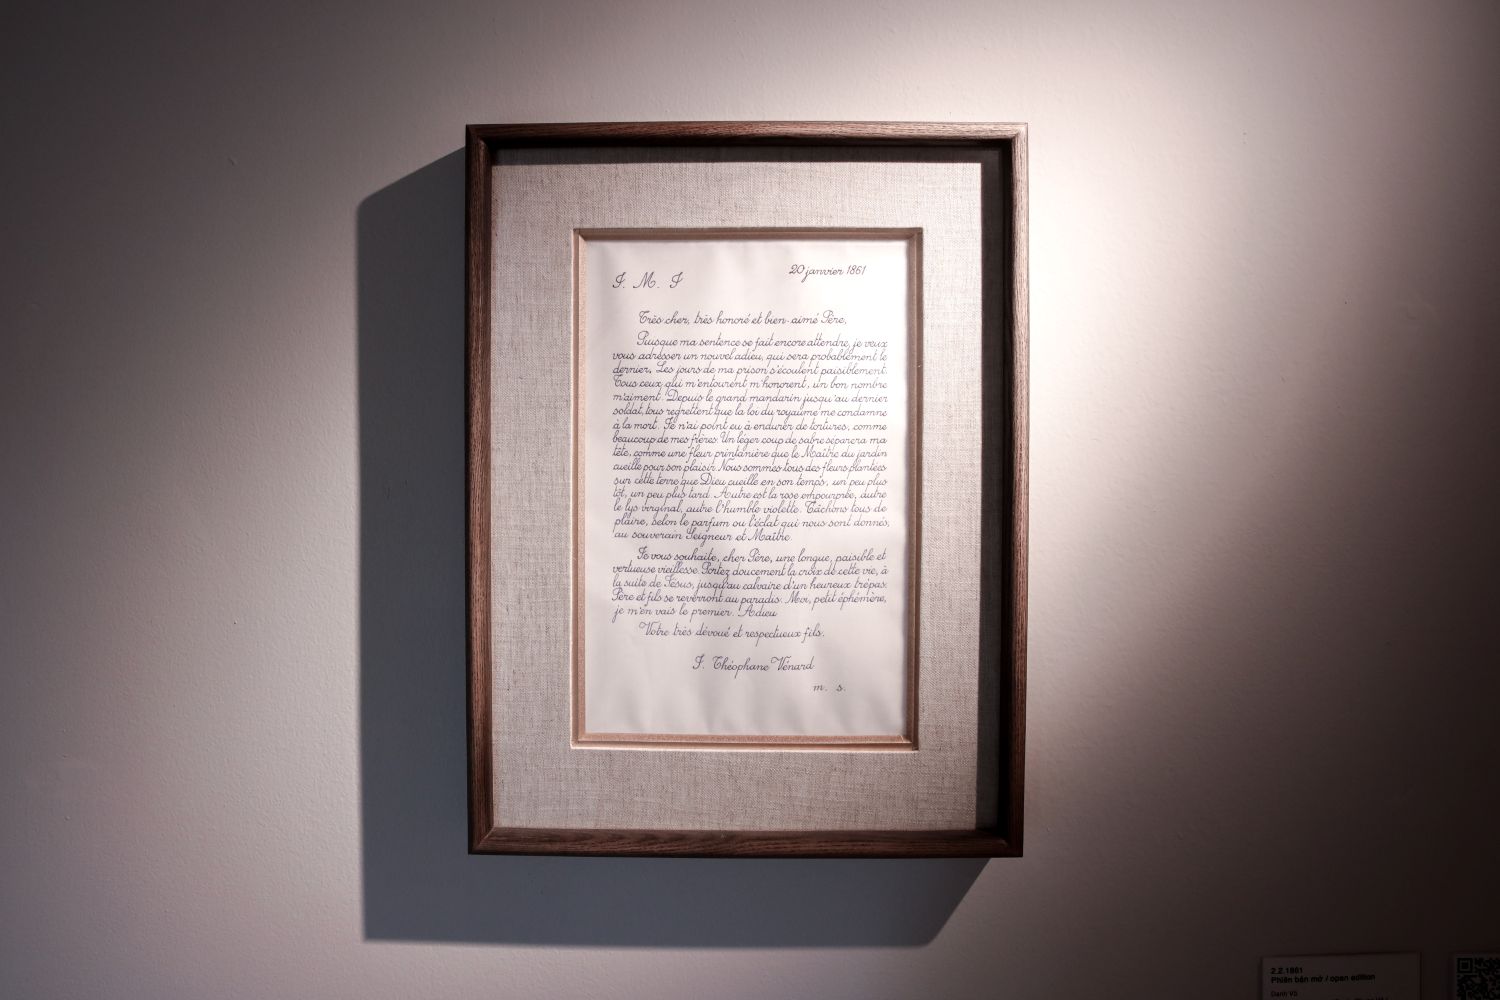 J. M. J
20 janvier 1861
Très cher, très honoré et bien-aimé Père,
Puisque ma sentence se fait encore attendre, je veux
vous adresser un nouvel adieu, qui sera probablement le
dernier. Les jours de ma prison s'écoulent paisiblement.
Tous ceux qui m'entourent m'honorent, un bon nombre
m'aiment. Depuis le grand mandarin jusqu'au dernier
soldat, tous regrettent que la loi du royaume me condamne
à la mort. Je n'ai point eu à endurer de tortures, comme
beaucoup de mes frères. Un léger coup de sabre séparera ma
tête, comme une fleur printanière que le Maître du jardin
cueille pour son plaisir. Nous sommes tous des fleurs plantées
sur cette terre que Dieu cueille en son temps, un peu plus
tôt, un peu plus tard. Autre est la rose empourprée, autre
le lys virginal, autre l'humble violette. Tâchons tous de
plaire, selon le parfum ou l'éclat qui nous sont donnés,
au souverain Seigneur et Maître.
Je vous souhaite, cher Père, une longue, paisible et
vertueuse vieillesse. Portez doucement la croix de cette vie, à
la suite de Jésus, jusqu'au calvaire d'un heureux trépas.
Père et fils se reverront au paradis. Moi, petit éphémère,
je m'en vais le premier. Adieu
Votre très dévoué et respectueux fils.
J. Théophane Vénard
m. s.
2.2.1861
Phiên bản mở / open edition
Danh Võ